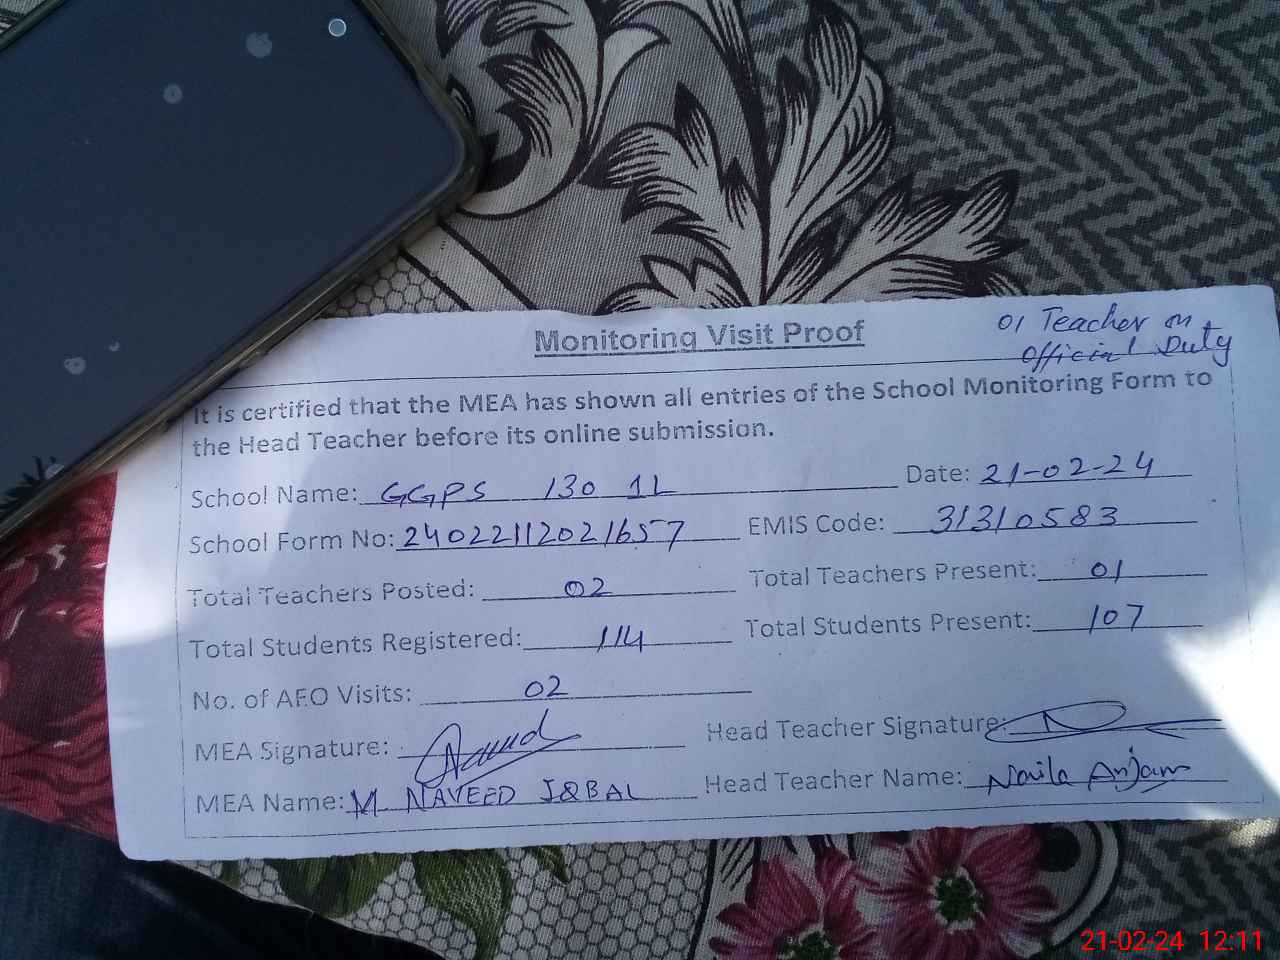 Monitoring Visit Proof
01 Teacher on
Official Duty
It is certified that the MEA has shown all entries of the School Monitoring Form to
the Head Teacher before its online submission.
School Name: GGPS 130 1L Date: 21-02-24
School Form No: 24022112021657 EMIS Code: 31310583
Total Teachers Posted: 02 Total Teachers Present: 01
Total Students Registered: 114 Total Students Present: 107
No. of AEO Visits: 02
MEA Signature: Head Teacher Signature:
MEA Name: M NAVEED IQBAL Head Teacher Name: Naila Anjam
21-02-24 12:11